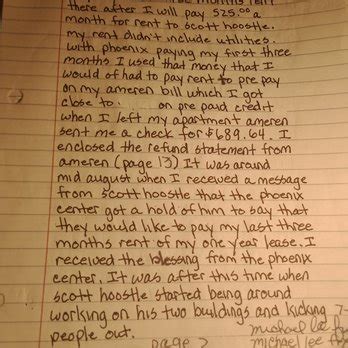 there after I will pay 525.00 a
month for rent to scott hoostle.
my rent didn't include utilities.
with phoenix paying my first three
months I used that money that I
would of had to pay rent to pre pay
on my ameren bill which I got
close to. on pre paid credit
when I left my apartment ameren
sent me a check for $689.64. I
enclosed the refund statement from
ameren (page 13) It was around
mid august when I received a message
from scott hoostle that the phoenix
center got a hold of him to say that
they would like to pay my last three
months rent of my one year lease. I
received the blessing from the phoenix
center. It was after this time when
scott hoostle started being around
working on his two buildings and kicking
people out.
michael lee
page 2
michael lee